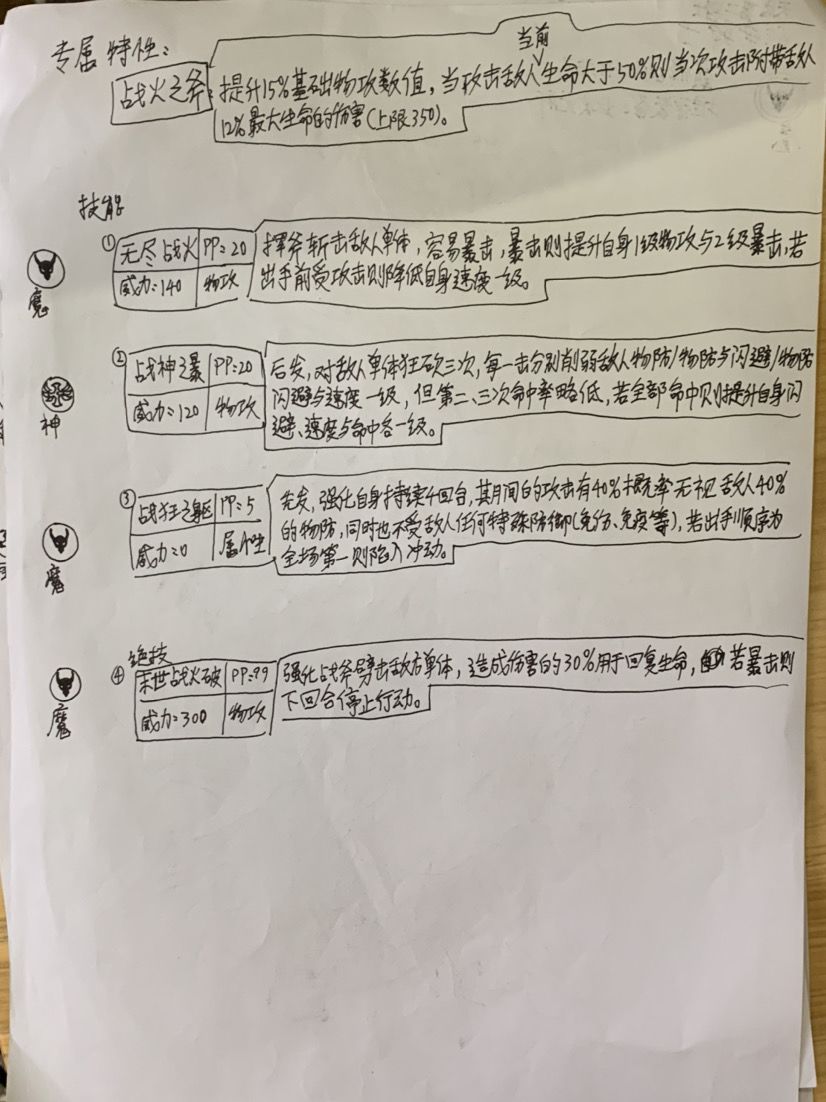 专属特性:
当前
战火之斧 提升15%基础物攻数值,当攻击敌人生命大于50%则当次攻击附带敌人
12%最大生命的伤害(上限350)。
技能
① 无尽战火 PP=20 挥斧斩击敌人单体,容易暴击,暴击则提升自身1级物攻与2级暴击,若
威力=140 物攻 出手前受攻击则降低自身速度一级。
魔
② 战神之暴 PP=20 后发,对敌人单体狂砍三次,每一击分别削弱敌人物防/物防与闪避/物防
威力=120 物攻 闪避与速度一级,但第二、三次命中率略低,若全部命中则提升自身闪
避、速度与命中各一级。
神
③ 战狂之躯 PP=5 先发,强化自身持续4回合,其月间的攻击有40%概率无视敌人40%
威力=0 属性 的物防,同时也不受敌人任何特殊防御(免伤、免疫等),若出手顺序为
全场第一则陷入冲动。
魔
绝技
④ 末世战火破 PP=99 强化战斧劈击敌方单体,造成伤害的30%用于回复生命,若暴击则
威力=300 物攻 下回合停止行动。
魔